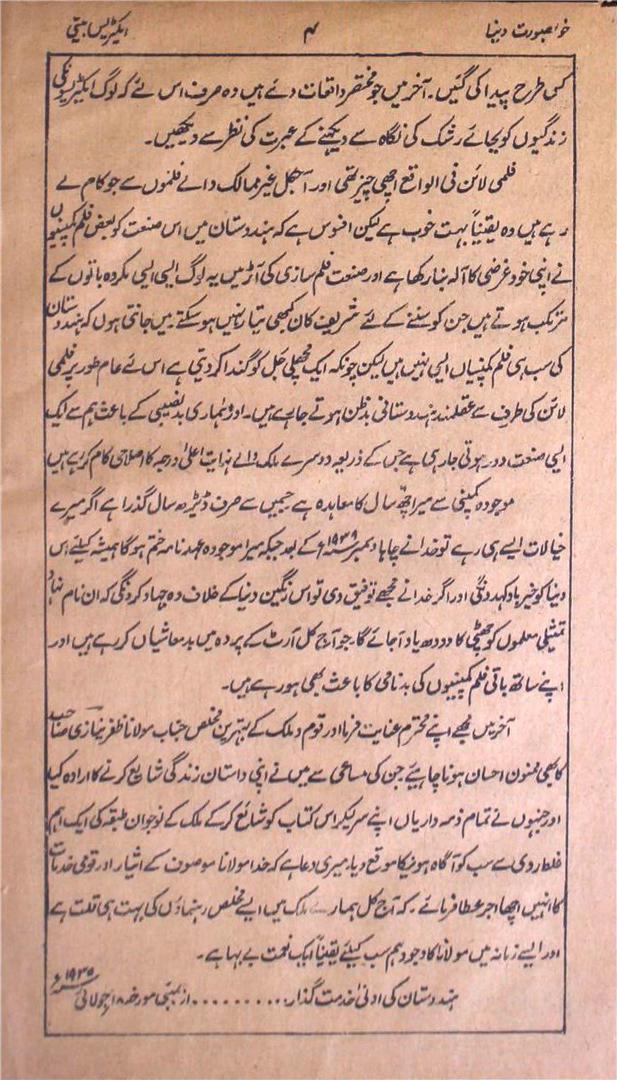 خوبصورت دنیا ۴ ایکٹریس بیتی
کس طرح پیدا کی گئیں۔ آخر میں جو مختصر واقعات دئے ہیں وہ صرف اس لئے کہ لوگ ایکٹریسونکی
زندگیوں کو بجائے رشک کی نگاہ سے دیکھنے کے عبرت کی نظر سے دیکھیں۔
فلمی لائن فی الواقع اچھی چیز تھی اور آجکل غیر ممالک والے فلموں سے جو کام لے
رہے ہیں وہ یقیناً بہت خوب ہے لیکن افسوس ہے کہ ہندوستان میں اس صنعت کو بعض فلم کمپنیوں
نے اپنی خود غرضی کا آلہ بنا رکھا ہے اور صنعت فلم سازی کی آڑ میں یہ لوگ ایسی ایسی مکروہ باتوں کے
مرتکب ہوتے ہیں جن کو سننے کے لئے شریف کان کبھی تیار نہیں ہو سکتے۔ میں جانتی ہوں کہ ہندوستان
کی سب ہی فلم کمپنیاں ایسی نہیں ہیں لیکن چونکہ ایک مچھلی جل کو گندا کر دیتی ہے اس لئے عام طور پر فلمی
لائن کی طرف سے عقلمند ہندوستانی بدظن ہوتے جا رہے ہیں۔ اور ہماری بدنصیبی کے باعث ہم سے ایک
ایسی صنعت دور ہوتی جا رہی ہے جس کے ذریعہ دوسرے ملک والے نہایت اعلیٰ درجہ کا اصلاحی کام کر رہے ہیں
موجودہ کمپنی سے میرا چھ سال کا معاہدہ ہے جسمیں سے صرف ڈیڑھ سال گذرا ہے اگر میرے
خیالات ایسے ہی رہے تو خدا نے چاہا دسمبر ۱۹۳۹ء کے بعد جبکہ میرا موجودہ عہد نامہ ختم ہوگا ہمیشہ کیلئے اس
دنیا کو خیرباد کہدونگی اور اگر خدا نے مجھے توفیق دی تو اس رنگین دنیا کے خلاف وہ جہاد کرونگی کہ ان نام نہاد
تمثیلی معلموں کو چھٹی کا دودھ یاد آ جائے گا۔ جو آج کل آرٹ کے پردہ میں بدمعاشیاں کر رہے ہیں اور
اپنے ساتھ باقی فلم کمپنیوں کی بدنامی کا باعث بھی ہو رہے ہیں۔
آخر میں مجھے اپنے محترم عنایت فرما اور قوم و ملک کے بہترین مخلص جناب مولانا ظفر نیازی صاحب
کا بھی ممنون احسان ہونا چاہیئے جن کی مساعی سے میں نے اپنی داستان زندگی شایع کرنے کا ارادہ کیا
اور جنہوں نے تمام ذمہ داریاں اپنے سر لیکر اس کتاب کو شائع کر کے ملک کے نوجوان طبقہ کی ایک اہم
غلط روی سے سب کو آگاہ ہونیکا موقع دیا۔ میری دعا ہے کہ خدا مولانا موصوف کے ایثار اور قومی خدمات
کا انہیں اچھا اجر عطا فرمائے۔ کہ آج کل ہمارے ملک میں ایسے مخلص رہنماؤں کی بہت ہی قلت ہے
اور ایسے زمانہ میں مولانا کا وجود ہم سب کیلئے یقیناً ایک نعمت بے بہا ہے۔
ہندوستان کی ادنیٰ خدمت گذار.......... از بمبئی مورخہ ۱۸ جولائی ۱۹۳۵ء